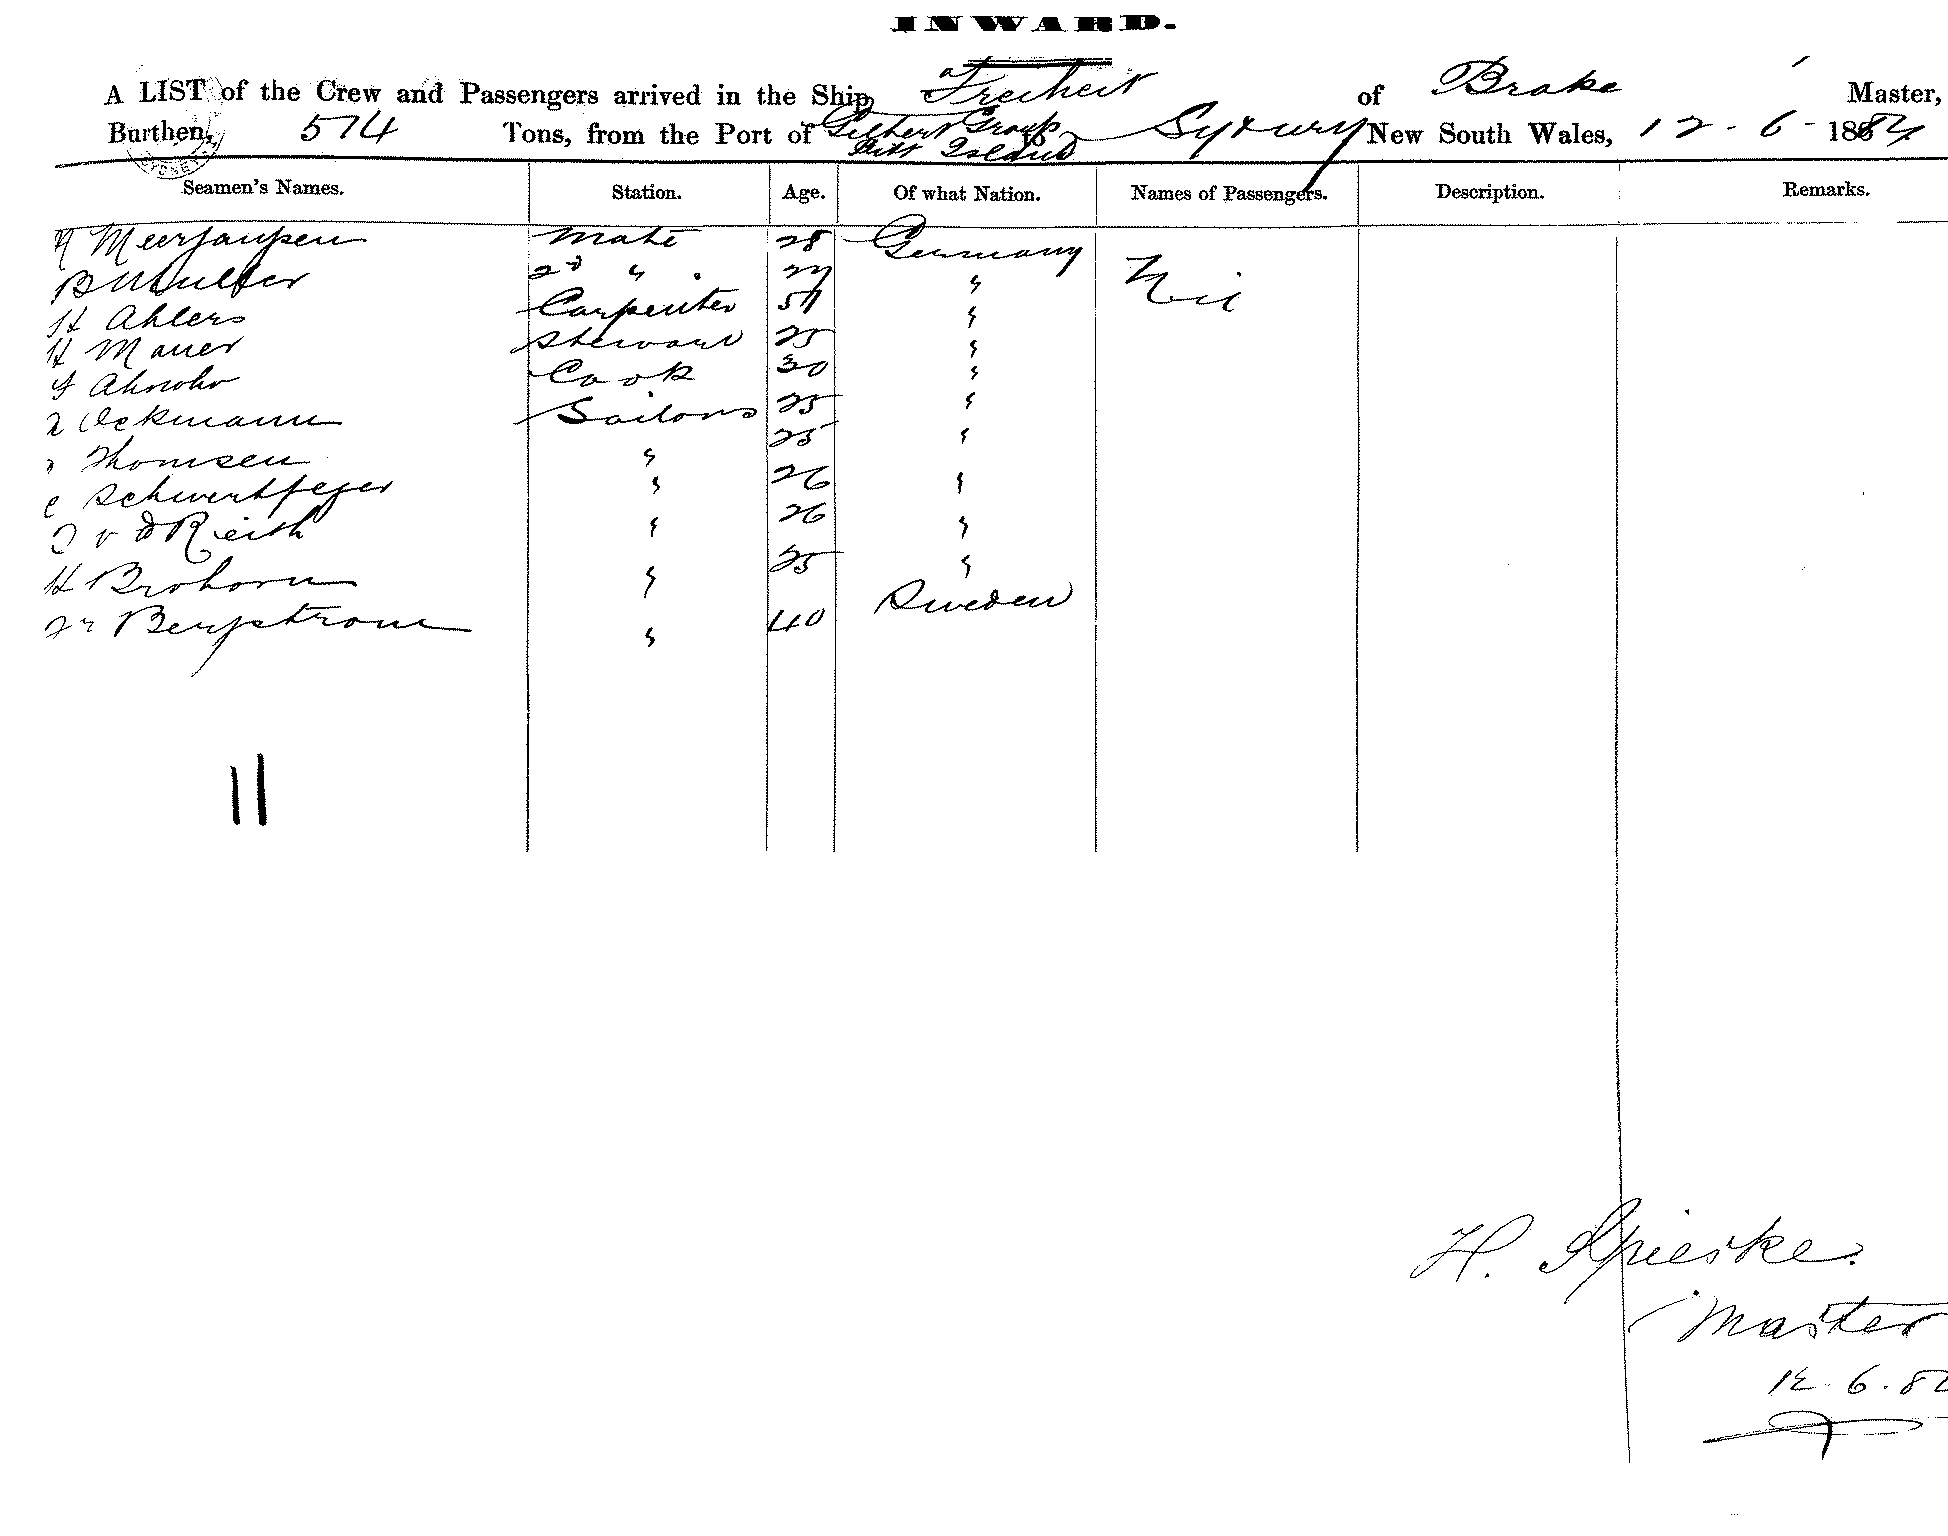 INWARD.
A LIST of the Crew and Passengers arrived in the Ship Freiheit of Brake Master,
Burthen, 574 Tons, from the Port of Gilbert Group Pitt Island to Sydney New South Wales, 12-6-1884
Seamen's Names. Station. Age. Of what Nation. Names of Passengers. Description. Remarks.
Mate 28 Germany Nil
B Muller 2d " 27 "
H Ahlers Carpenter 51 "
H Mauer Steward 25 "
Cook 30 "
Ockmann Sailors 25 "
Thomsen " 25 "
C Schwertfeger " 26 "
v d Reith " 26 "
H Brohorn " 25 "
Bergstrom " 40 Sweden
11
H. Spieske.
Master
12.6.84